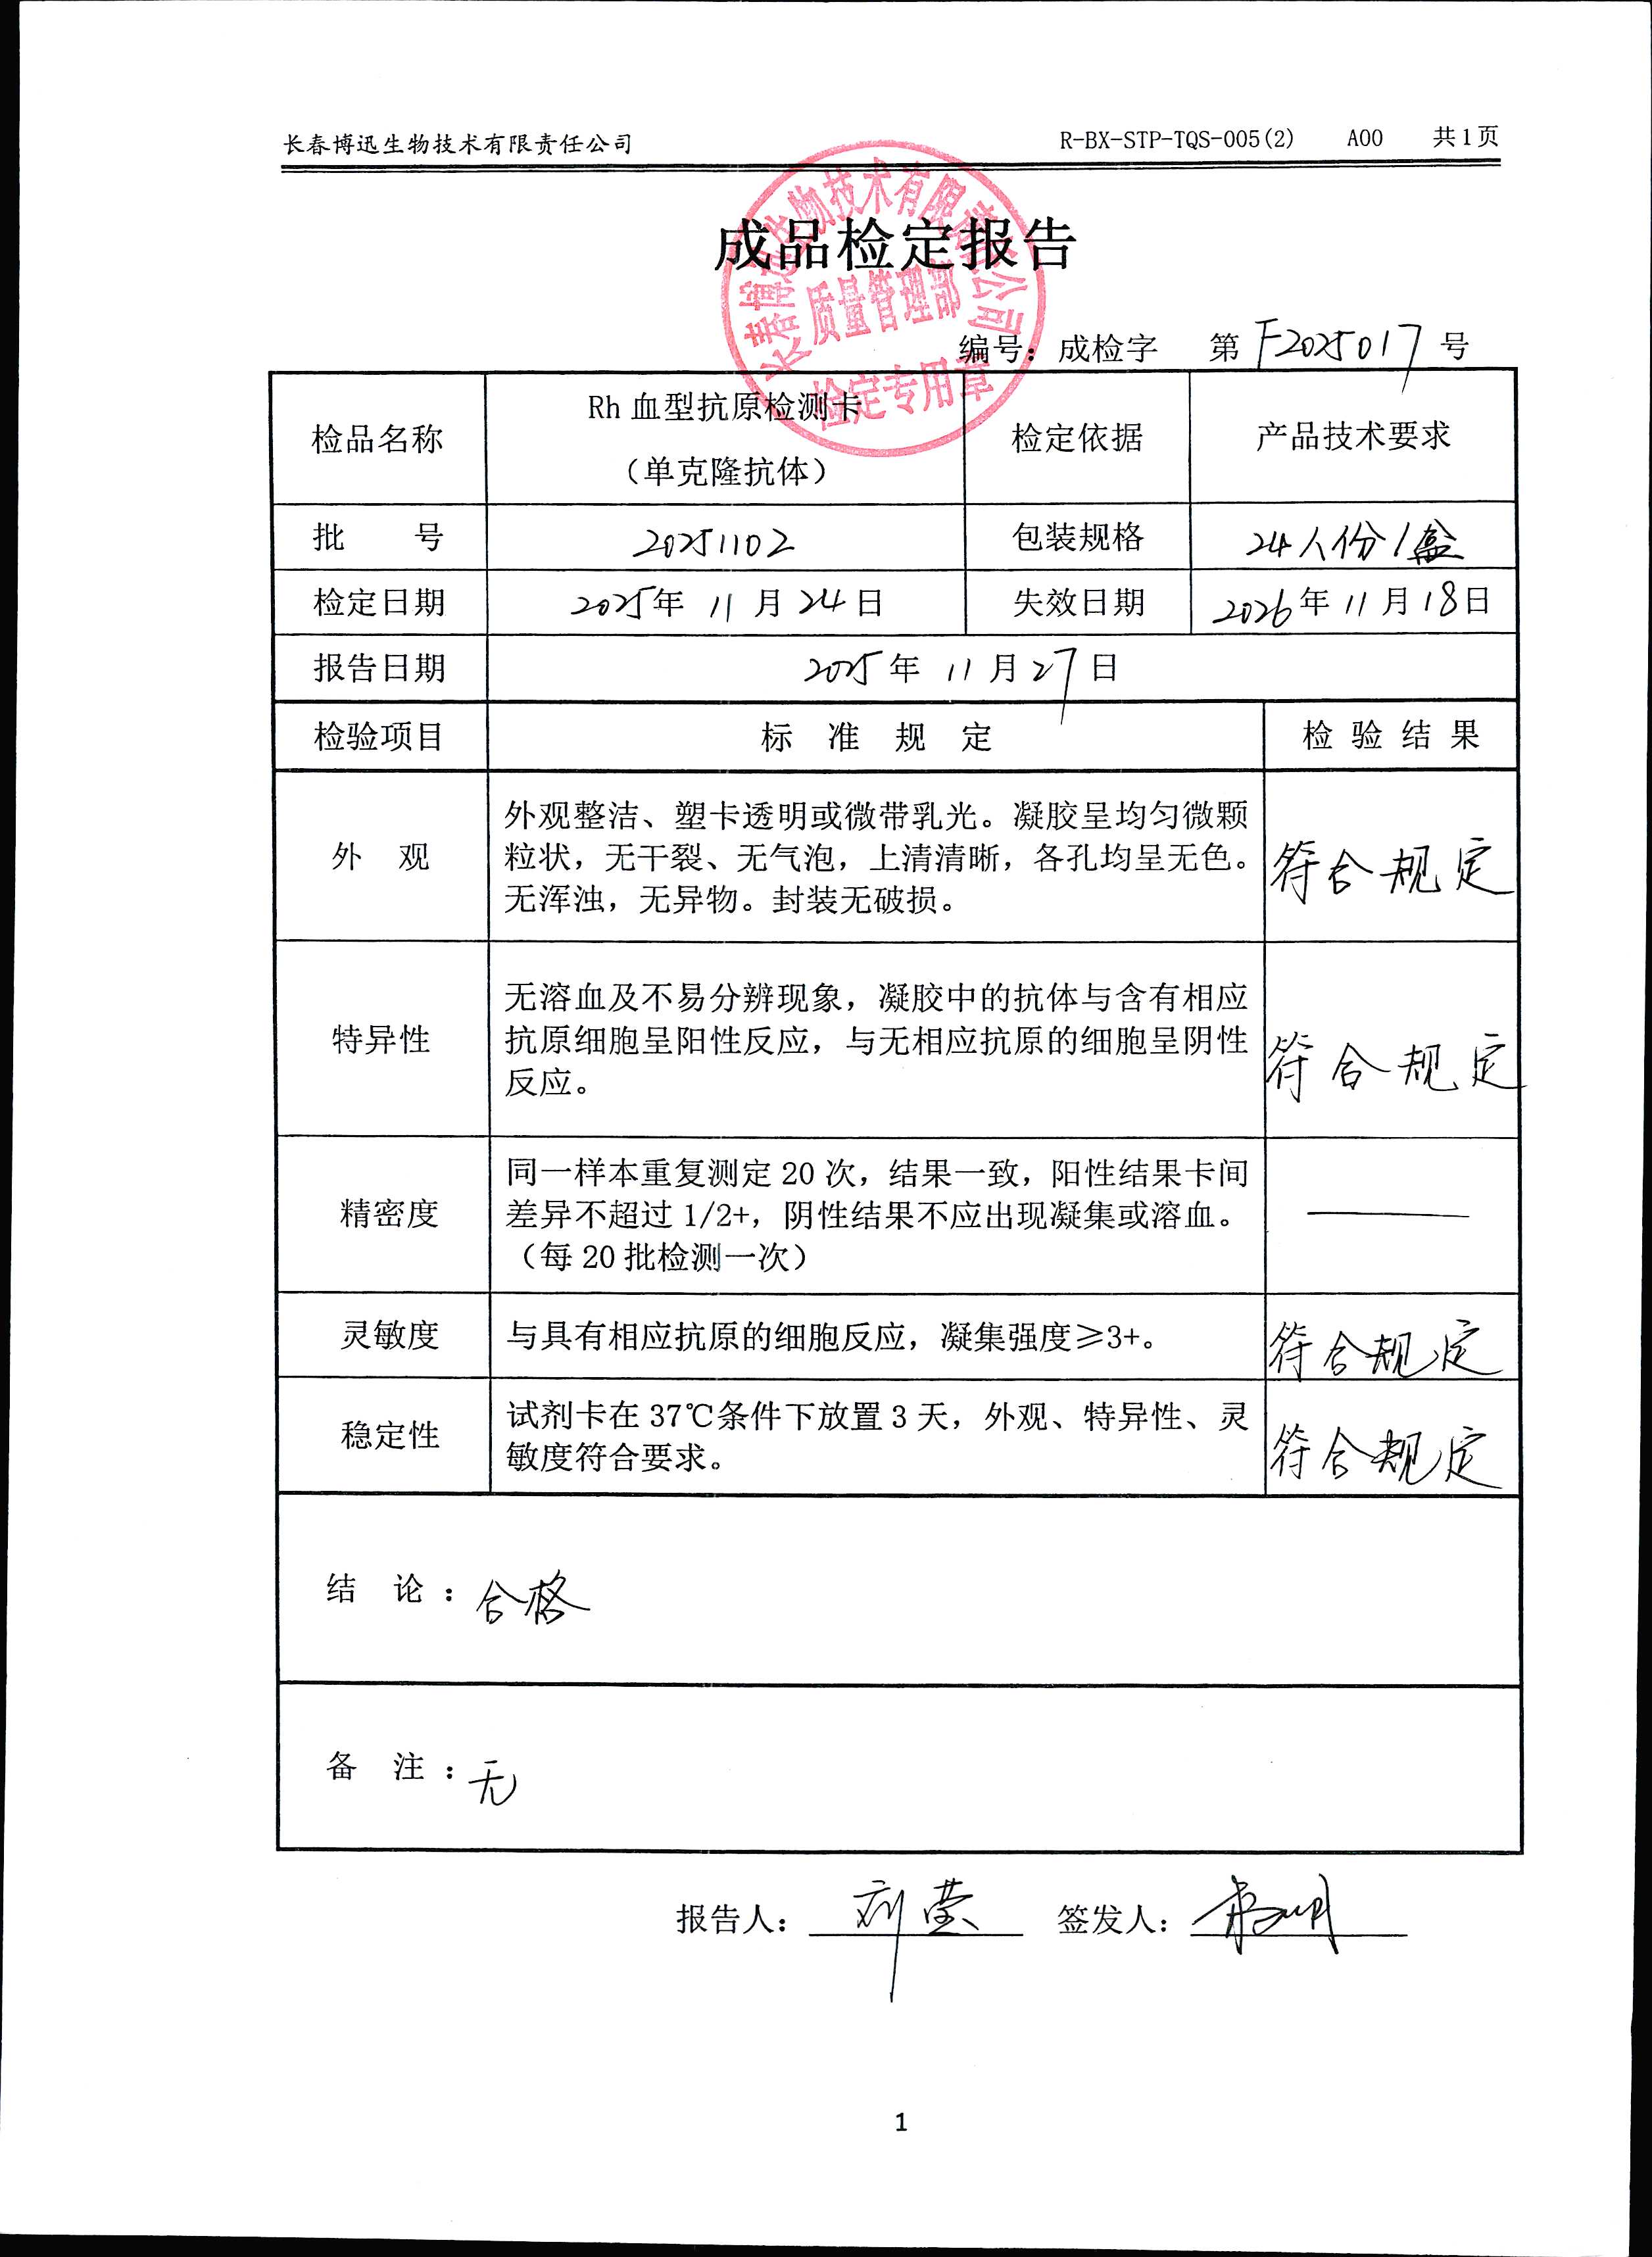 长春博迅生物技术有限责任公司 R-BX-STP-TQS-005(2) A00 共1页
长春博迅生物技术有限责任公司
质量管理部
检定专用章
成品检定报告
编号：成检字 第F2025017号
检品名称 Rh 血型抗原检测卡 检定依据 产品技术要求
（单克隆抗体）
批 号 20251102 包装规格 24人份/盒
检定日期 2025年 11 月 24 日 失效日期 2026年 11 月 18日
报告日期 2025年 11 月 27日
检验项目 标 准 规 定 检 验 结 果
外 观 符合规定
外观整洁、塑卡透明或微带乳光。凝胶呈均匀微颗
粒状，无干裂、无气泡，上清清晰，各孔均呈无色。
无浑浊，无异物。封装无破损。
特异性 符合规定
无溶血及不易分辨现象，凝胶中的抗体与含有相应
抗原细胞呈阳性反应，与无相应抗原的细胞呈阴性
反应。
精密度 ——
同一样本重复测定 20 次，结果一致，阳性结果卡间
差异不超过 1/2+，阴性结果不应出现凝集或溶血。
（每 20 批检测一次）
灵敏度 与具有相应抗原的细胞反应，凝集强度≥3+。 符合规定
稳定性 符合规定
试剂卡在 37℃条件下放置 3 天，外观、特异性、灵
敏度符合要求。
结 论 ：合格
备 注 ：无
报告人：刘莹 签发人：
1